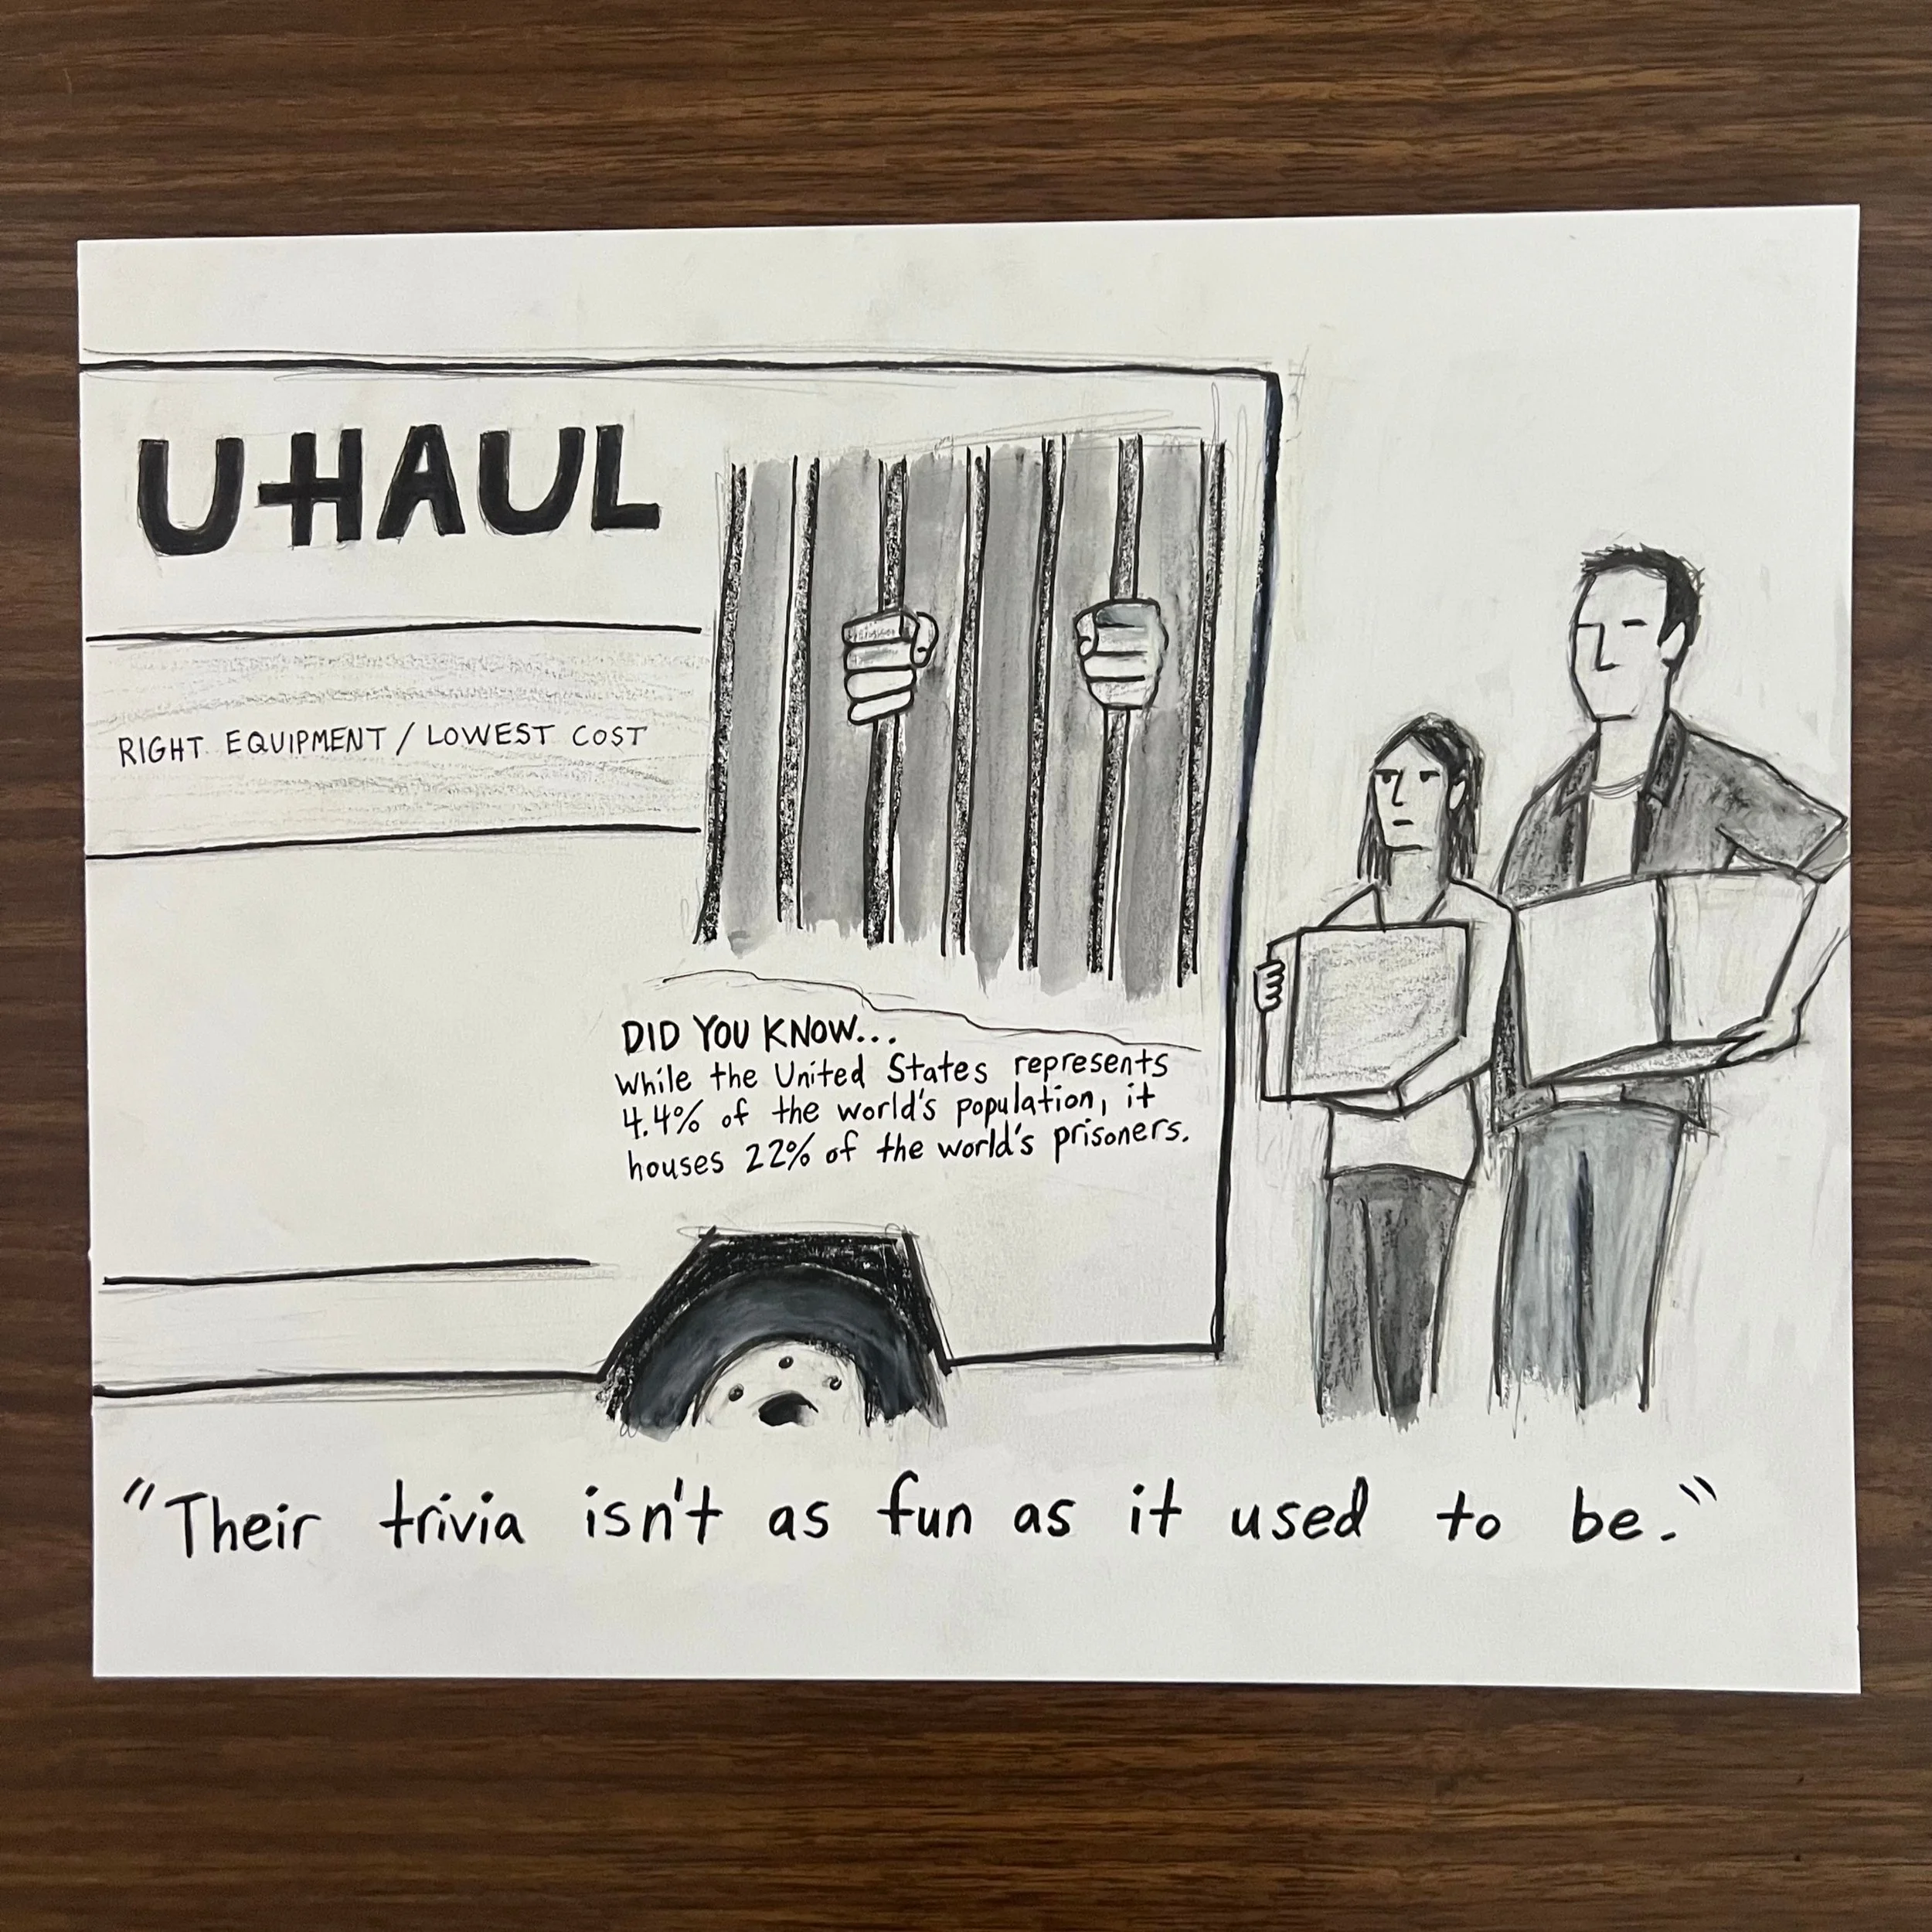 U-HAUL
RIGHT EQUIPMENT / LOWEST COST
DID YOU KNOW...
while the United States represents
4.4% of the world's population, it
houses 22% of the world's prisoners.
"Their trivia isn't as fun as it used to be."